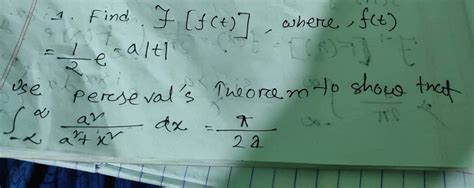 1. Find F [f(t)], where, f(t)
= 1/2 e^-a|t|
use perseval's Theorem to show that
∫_-∝^∝ a^2/(a^2+x^2) dx = π/2a